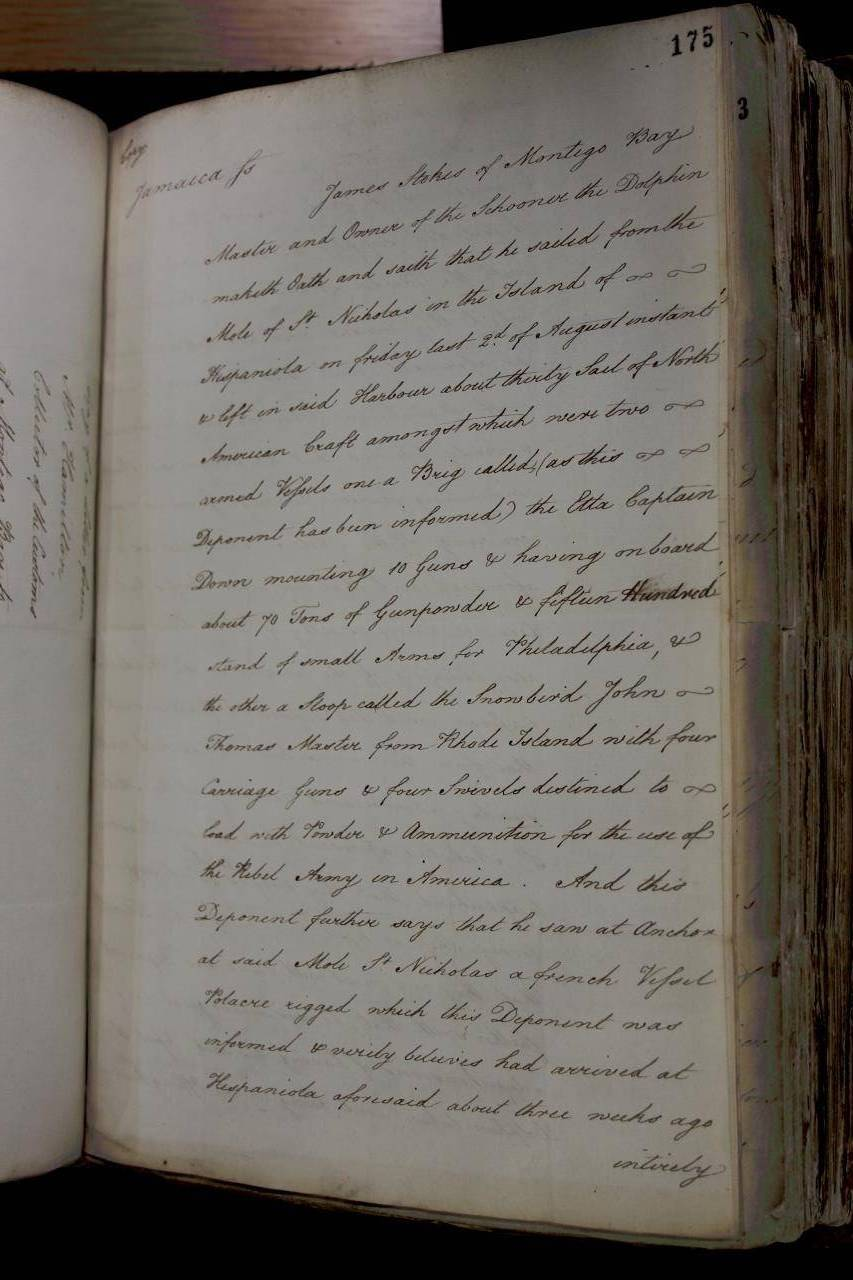 175
3
Copy
Jamaica ſs
James Stokes of Montego Bay
Master and Owner of the Schooner the Dolphin
maketh Oath and saith that he sailed from the
Mole of St. Nicholas in the Island of
Hispaniola on friday last 2d. of August instant
& left in said Harbour about thirty Sail of North
American Craft amongst which were two
armed Veſsels one a Brig called (as this
Deponent has been informed) the Etta Captain
Down mounting 10 Guns & having on board
about 70 Tons of Gunpowder & fifteen Hundred
stand of small Arms for Philadelphia, &
the other a Sloop called the Snowbird John
Thomas Master from Rhode Island with four
Carriage Guns & four Swivels destined to
load with Powder & Ammunition for the use of
the Rebel Army in America. And this
Deponent further says that he saw at Anchor
at said Mole St Nicholas a french Veſsel
Polacre rigged which this Deponent was
informed & verily believes had arrived at
Hispaniola aforesaid about three weeks ago
intirely
Copy of a letter from
Mr. Hamilton
Collector of the Customs
at Montego Bay